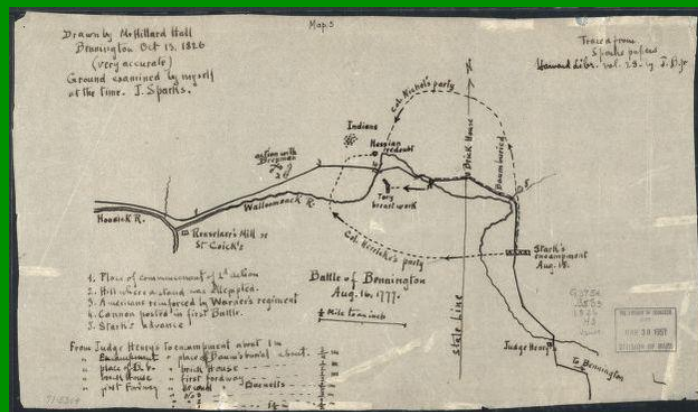 Map 5
Drawn by Mr Hillard Hall
Bennington Oct 13. 1826
(very accurate)
Ground examined by myself
at the time. J. Sparks.
Traced from
Sparks papers
Harvard Libr. vol. 29. by
Col. Nichols's party
N
Indians
Hessian
redoubt
action with
Breyman
Brick House
Baum buried
Tory
breastwork
Walloomsack R.
Hoosick R.
Renselaer's Mill or
St Coick's
Col. Herrick's party
Stark's
encampment
Aug. 15.
Battle of Bennington
Aug. 16. 1777.
½ Mile to an inch
State Line
Judge Henry
To Bennington
1. Place of commencement of 2d action
2. Hill where a stand was attempted.
3. Americans reinforced by Warner's regiment
4. Cannon posted in first Battle.
5. Stark's advance
From Judge Henry's to encampment about 1 m
" Encampment " place of Baum's burial about
" place of Do b. " brick House
" brick House " first fordway
" first Fordway " second
DIVISION OF MAPS